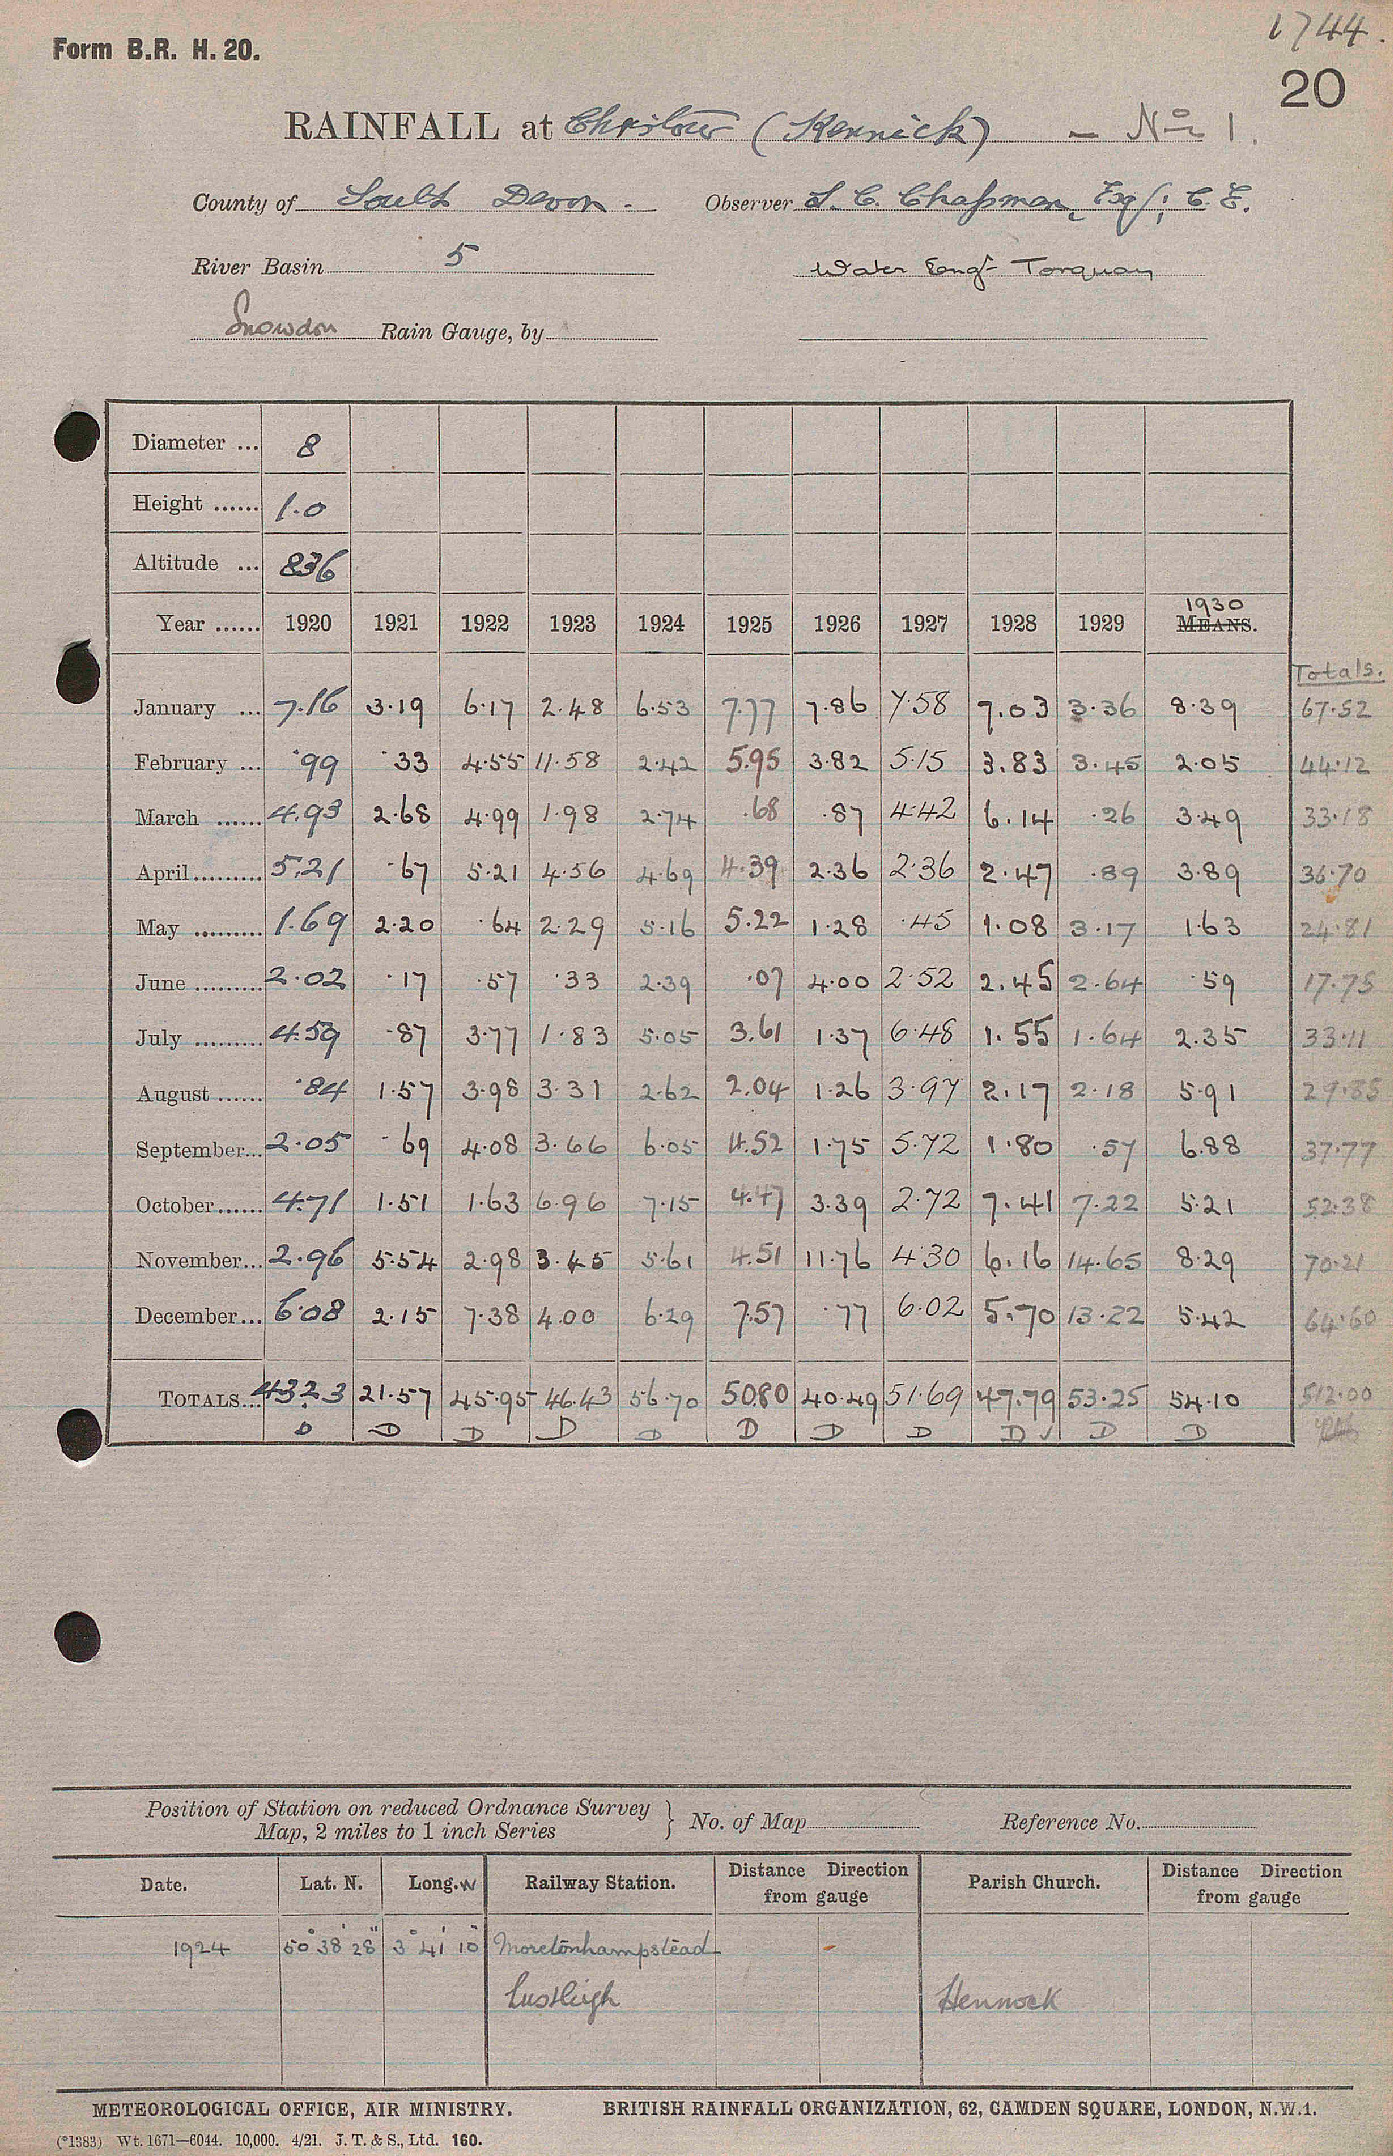 1744.
Form B.R. H. 20.
20
RAINFALL at Christow (Kennick) - No 1.
County of South Devon. Observer S. C. Chapman, Esq; C. E.
River Basin 5 Water Engr Torquay
Snowdon Rain Gauge, by
Diameter ... 8
Height ...... 1.0
Altitude ... 836
1930
Year ...... 1920 1921 1922 1923 1924 1925 1926 1927 1928 1929 MEANS.
Totals.
January ... 7.16 3.19 6.17 2.48 6.53 7.77 7.86 7.58 7.03 3.36 8.39 67.52
February ... .99 .33 4.55 11.58 2.42 5.95 3.82 5.15 3.83 3.45 2.05 44.12
March ...... 4.93 2.68 4.99 1.98 2.74 .68 .87 4.42 6.14 .26 3.49 33.18
April......... 5.21 .67 5.21 4.56 4.69 4.39 2.36 2.36 2.47 .89 3.89 36.70
May ......... 1.69 2.20 .64 2.29 5.16 5.22 1.28 .45 1.08 3.17 1.63 24.81
June ......... 2.02 .17 .57 .33 2.39 .07 4.00 2.52 2.45 2.64 .59 17.75
July ......... 4.59 .87 3.77 1.83 5.05 3.61 1.37 6.48 1.55 1.64 2.35 33.11
August ...... .84 1.57 3.98 3.31 2.62 2.04 1.26 3.97 2.17 2.18 5.91 29.85
September... 2.05 .69 4.08 3.66 6.05 4.52 1.75 5.72 1.80 .57 6.88 37.77
October...... 4.71 1.51 1.63 6.96 7.15 4.47 3.39 2.72 7.41 7.22 5.21 52.38
November... 2.96 5.54 2.98 3.45 5.61 4.51 11.76 4.30 6.16 14.65 8.29 70.21
December... 6.08 2.15 7.38 4.00 6.29 7.57 .77 6.02 5.70 13.22 5.42 64.60
TOTALS... 43.23 21.57 45.95 46.43 56.70 50.80 40.49 51.69 47.79 53.25 54.10 512.00
D D D D D D D D D ✓ D D
Position of Station on reduced Ordnance Survey
Map, 2 miles to 1 inch Series } No. of Map Reference No.
Date. Lat. N. Long. W Railway Station. Distance Direction from gauge Parish Church. Distance Direction from gauge
1924 50° 38' 28" 3° 41' 10" Moretonhampstead
Lustleigh Hennock
METEOROLOGICAL OFFICE, AIR MINISTRY. BRITISH RAINFALL ORGANIZATION, 62, CAMDEN SQUARE, LONDON, N.W.1.
(*1383) Wt. 1671—6044. 10,000. 4/21. J. T. & S., Ltd. 160.